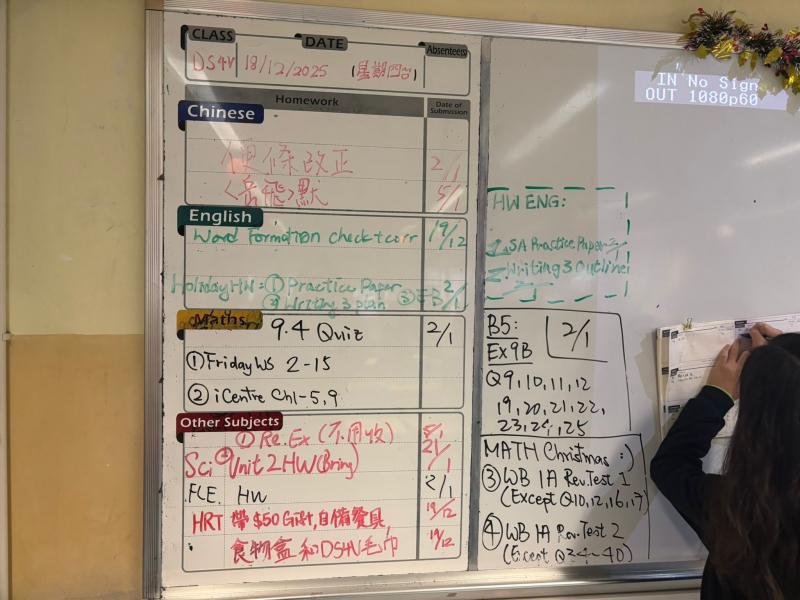 CLASS DATE Absentees
DS4V 18/12/2025 (星期四)
Homework Date of Submission
Chinese
便條改正 2/1
<岳飛>默 5/1
English
Word Formation check+corr 19/12
Holiday HW: ① Practice Paper 2/1
② Writing 3 plan ③
Maths 9.4 Quiz 2/1
① Friday WS 2-15
② iCentre Ch1-5, 9
Other Subjects
① Re.Ex (不用收) 5/1
Sci ② Unit 2 HW (Bring) 2/1
FLE. HW 2/1
HRT 帶 $50 Gift, 自備餐具, 19/12
食物盒 和 DSHN毛巾 19/12
IN No Sign
OUT 1080p60
HW ENG:
1. SA Practice Paper 2/1
2. Writing 3 Outline
B5: 2/1
Ex 9B
Q9, 10, 11, 12
19, 20, 21, 22,
23, 24, 25
MATH Christmas :)
③ WB 1A Rev. Test 1
(Except Q10, 12, 16, 17)
④ WB 1A Rev. Test 2
(Except Q34~40)